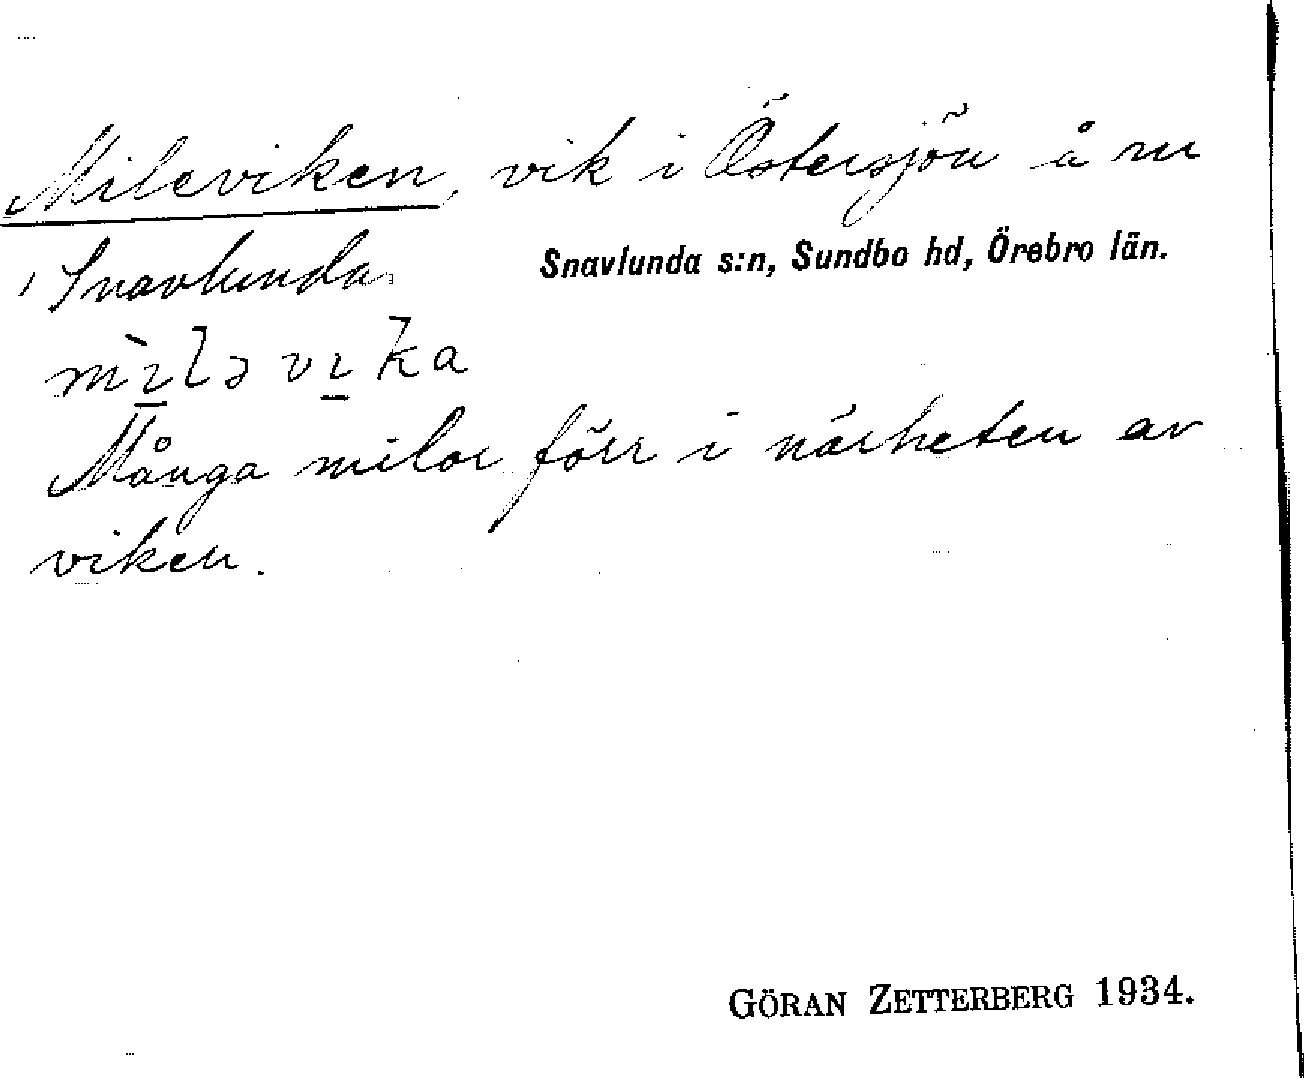 Mileviken, vik i Östersjön å nr
1 Snavlunda.
Snavlunda s:n, Sundbo hd, Örebro län.
mìlə vıka
Många milor förr i närheten av
viken.
GÖRAN ZETTERBERG 1934.